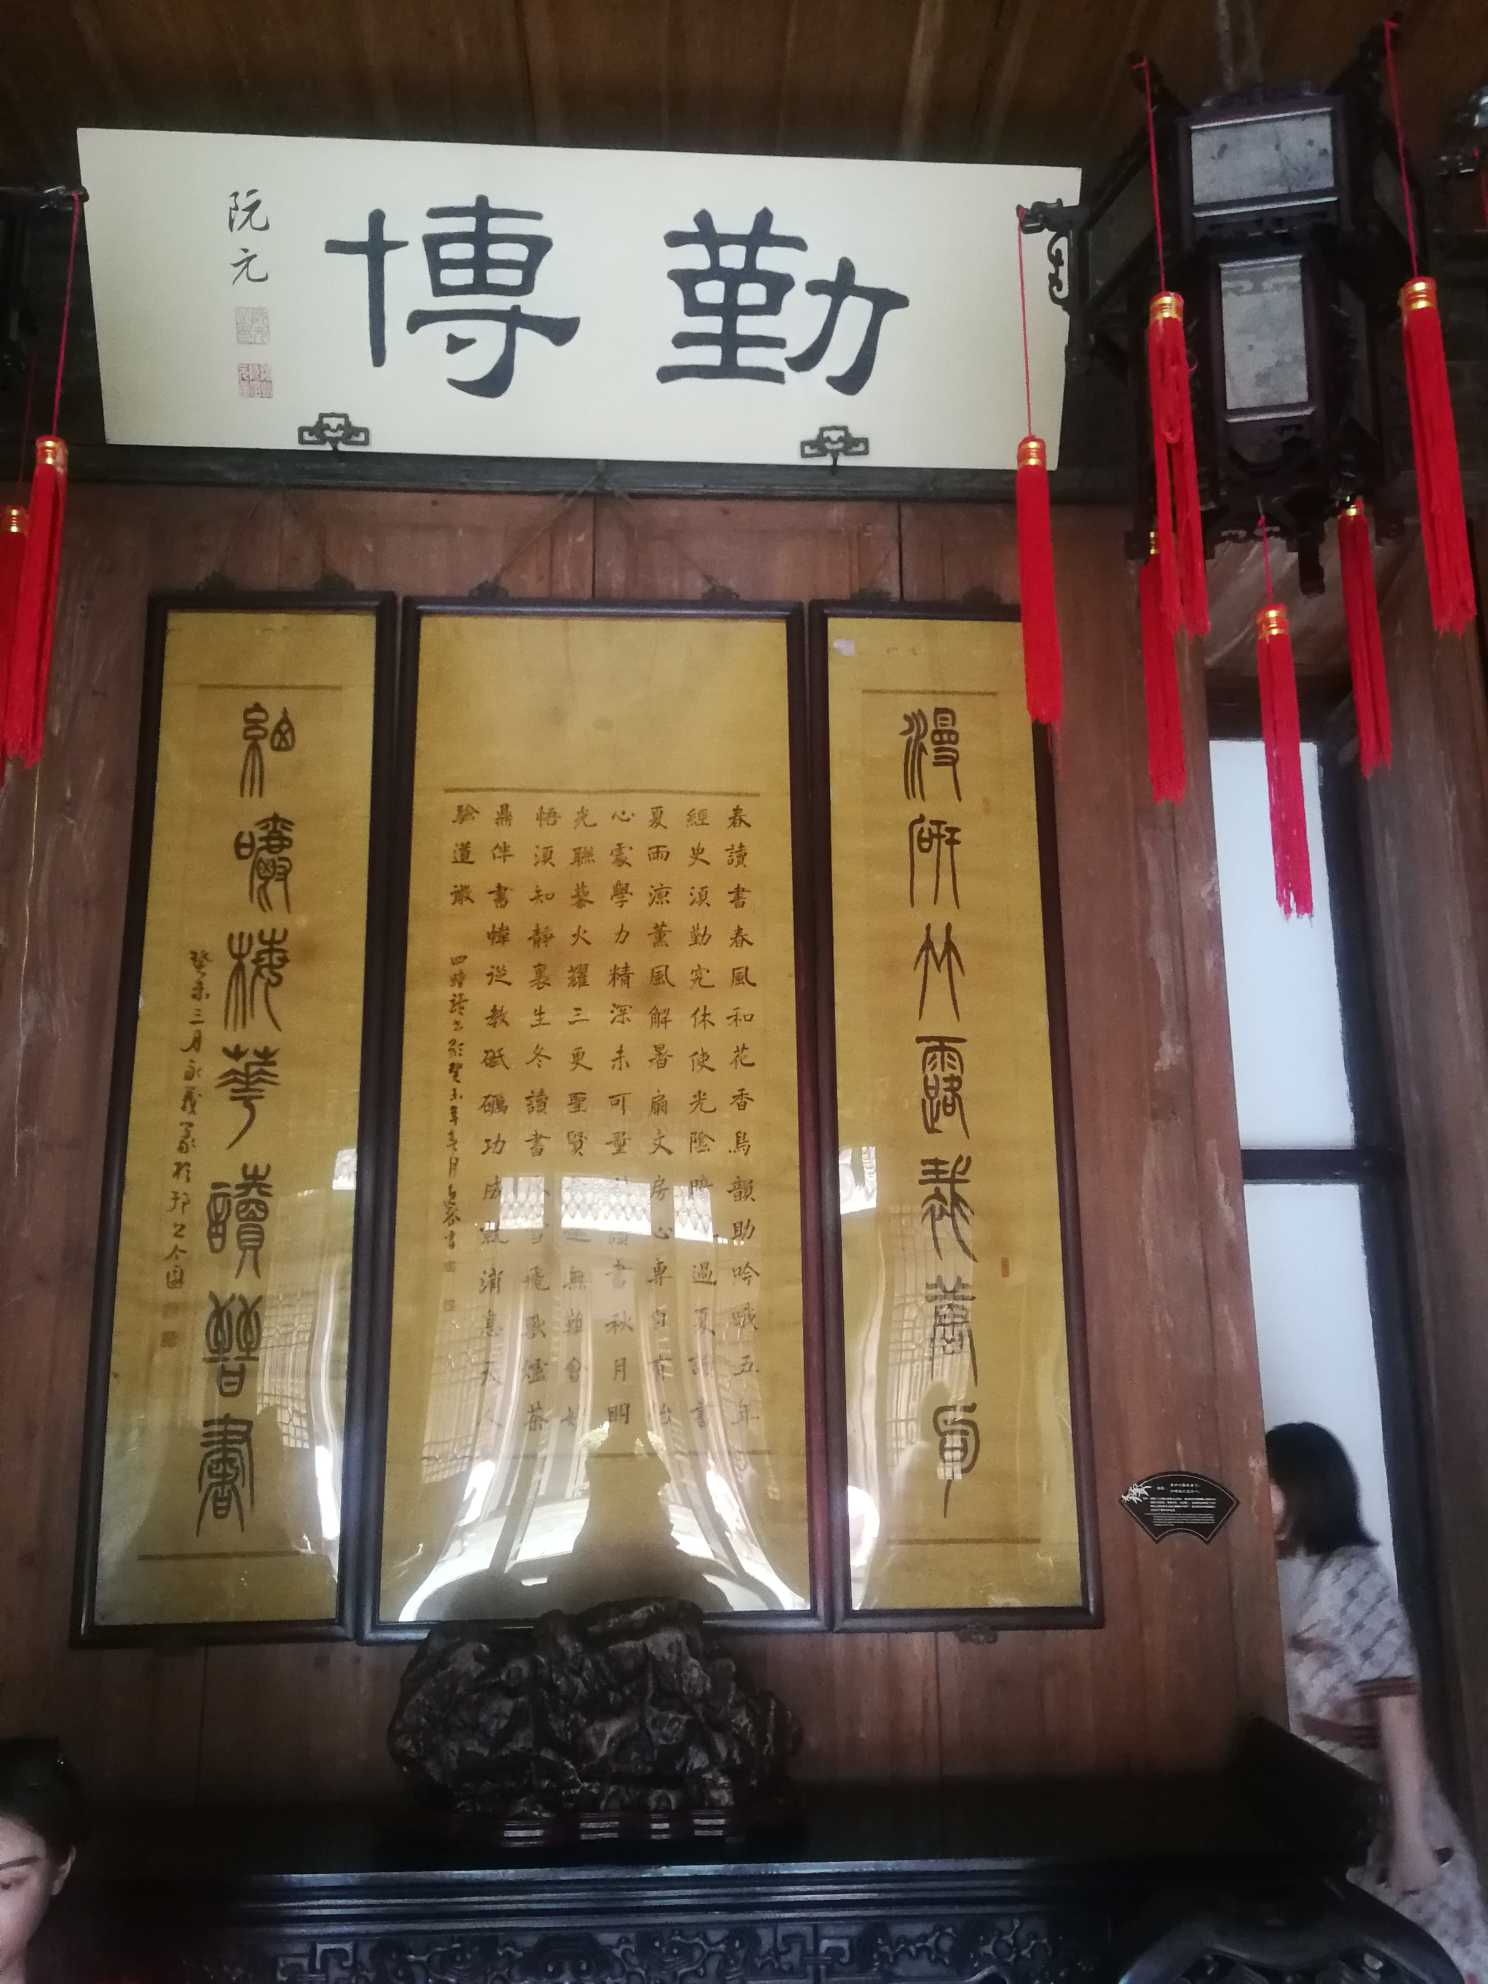 勤博
阮元
漫研竹露裁
春讀書春風和花香鳥韻助吟哦五年
經史須勤究休使光陰過夏讀書
夏雨涼薰風解暑扇文房心專自
心處學力精深未可量讀書秋月明
光聯藜火耀三更聖賢無難會妙
悟須知靜裏生冬讀書雪飛爐茶
鼎伴書幃從教砥礪功成就消息天人
驗道微
四時讀書歌癸未年春月書
細嚼梅華讀晉書
癸未三月永義篆於邗上个園